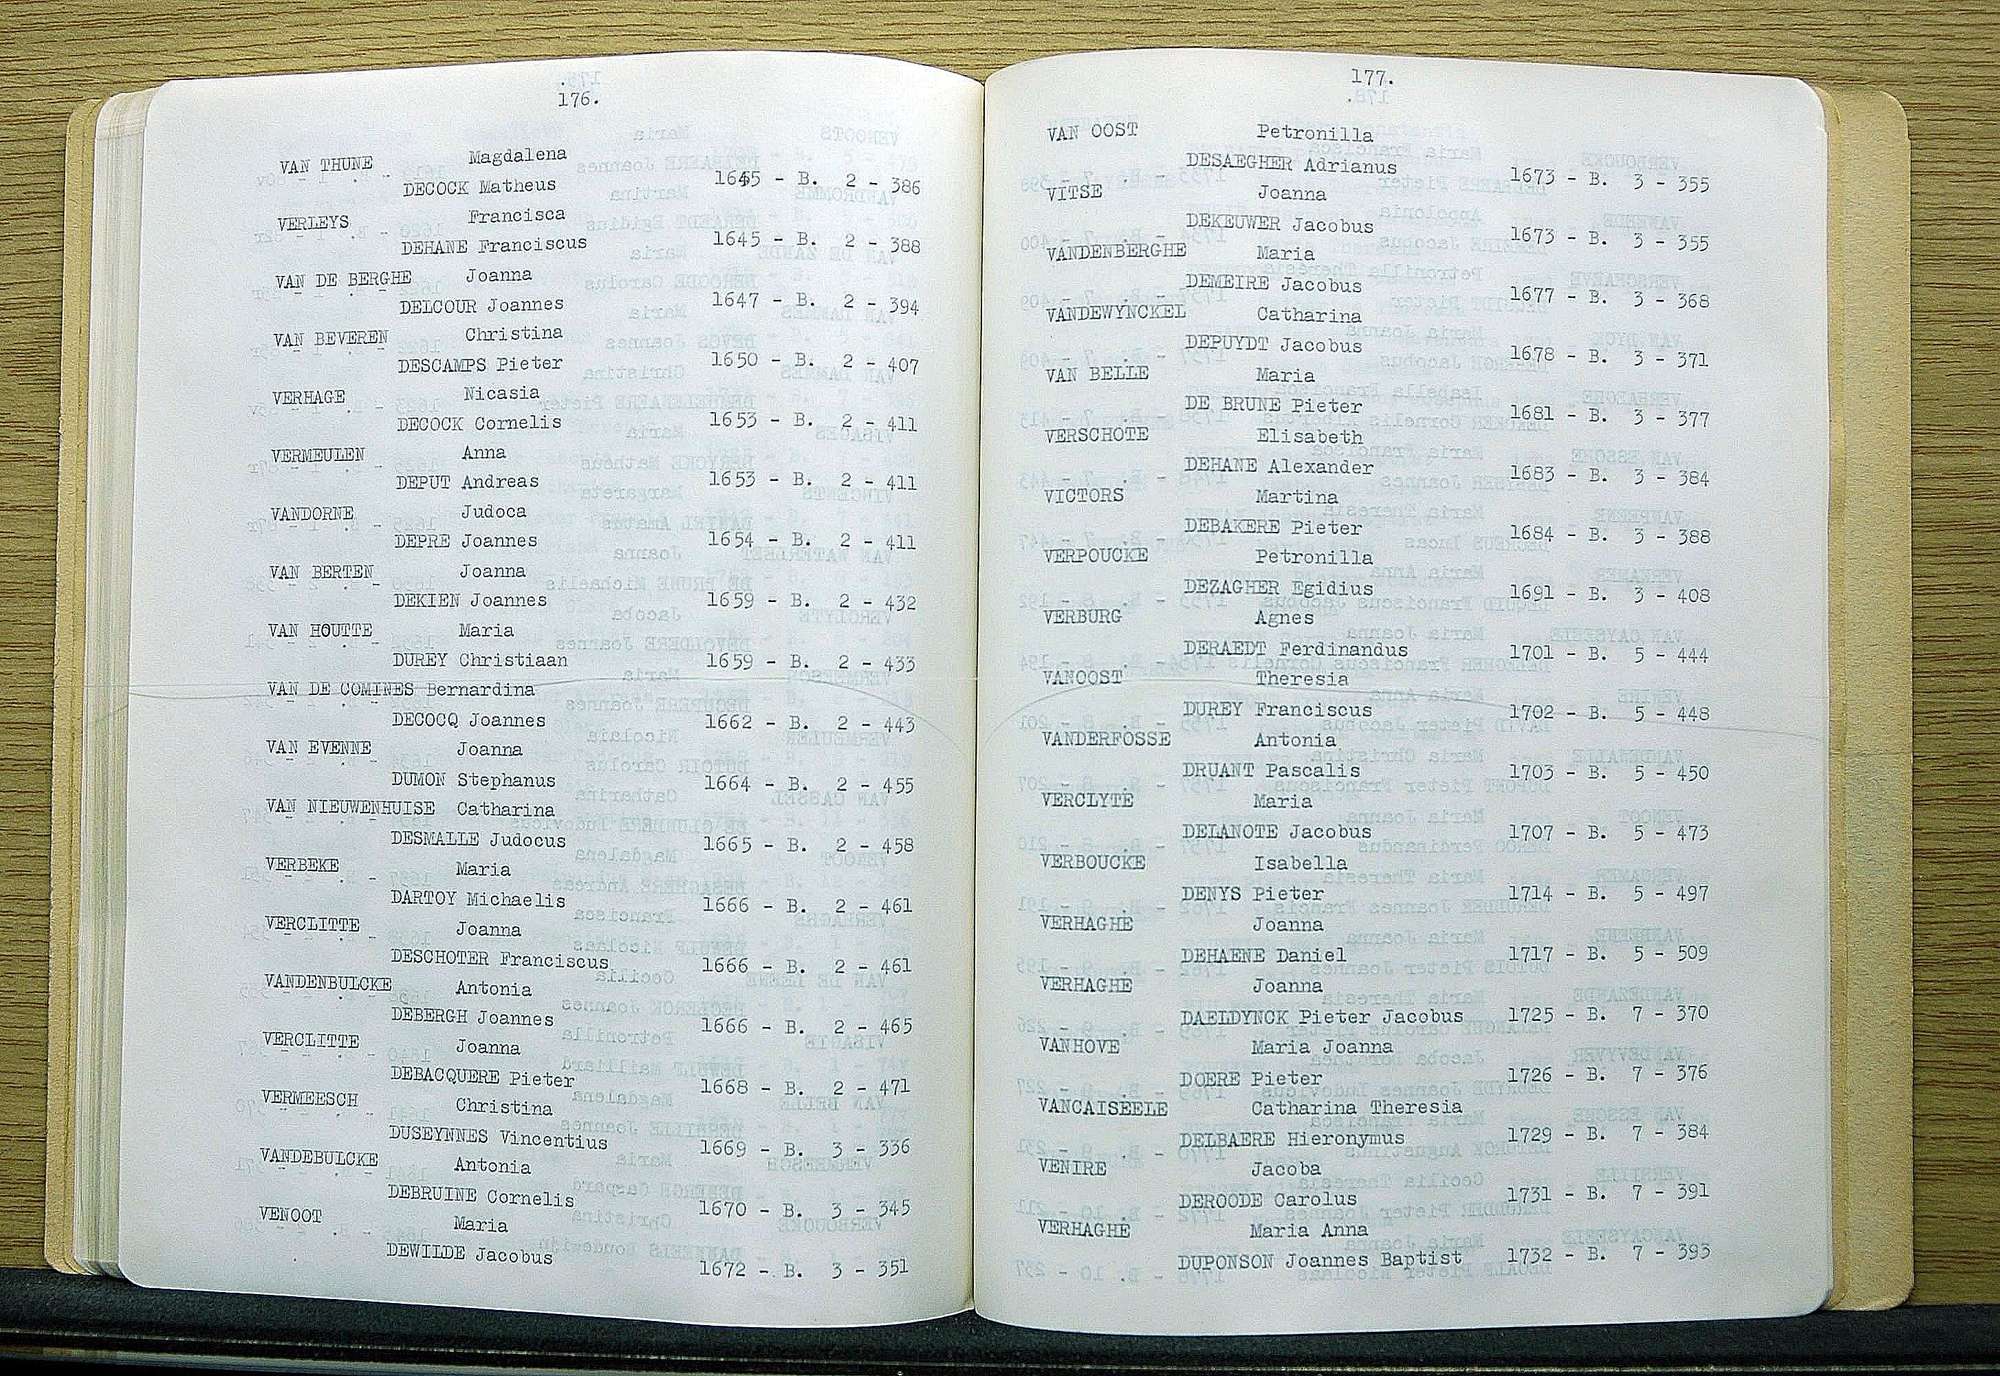 176.
VAN THUNE Magdalena
DECOCK Matheus 1645 - B. 2 - 386
VERLEYS Francisca
DEHANE Franciscus 1645 - B. 2 - 388
VAN DE BERGHE Joanna
DELCOUR Joannes 1647 - B. 2 - 394
VAN BEVEREN Christina
DESCAMPS Pieter 1650 - B. 2 - 407
VERHAGE Nicasia
DECOCK Cornelis 1653 - B. 2 - 411
VERMEULEN Anna
DEPUT Andreas 1653 - B. 2 - 411
VANDORNE Judoca
DEPRE Joannes 1654 - B. 2 - 411
VAN BERTEN Joanna
DEKIEN Joannes 1659 - B. 2 - 432
VAN HOUTTE Maria
DUREY Christiaan 1659 - B. 2 - 433
VAN DE COMINES Bernardina
DECOCQ Joannes 1662 - B. 2 - 443
VAN EVENNE Joanna
DUMON Stephanus 1664 - B. 2 - 455
VAN NIEUWENHUISE Catharina
DESMALLE Judocus 1665 - B. 2 - 458
VERBEKE Maria
DARTOY Michaelis 1666 - B. 2 - 461
VERCLITTE Joanna
DESCHOTER Franciscus 1666 - B. 2 - 461
VANDENBULCKE Antonia
DEBERGH Joannes 1666 - B. 2 - 465
VERCLITTE Joanna
DEBACQUERE Pieter 1668 - B. 2 - 471
VERMEESCH Christina
DUSEYNNES Vincentius 1669 - B. 3 - 336
VANDEBULCKE Antonia
DEBRUINE Cornelis 1670 - B. 3 - 345
VENOOT Maria
DEWILDE Jacobus 1672 - B. 3 - 351
177.
VAN OOST Petronilla
DESAEGHER Adrianus 1673 - B. 3 - 355
VITSE Joanna
DEKEUWER Jacobus 1673 - B. 3 - 355
VANDENBERGHE Maria
DEMEIRE Jacobus 1677 - B. 3 - 368
VANDEWYNCKEL Catharina
DEPUYDT Jacobus 1678 - B. 3 - 371
VAN BELLE Maria
DE BRUNE Pieter 1681 - B. 3 - 377
VERSCHOTE Elisabeth
DEHANE Alexander 1683 - B. 3 - 384
VICTORS Martina
DEBAKERE Pieter 1684 - B. 3 - 388
VERPOUCKE Petronilla
DEZAGHER Egidius 1691 - B. 3 - 408
VERBURG Agnes
DERAEDT Ferdinandus 1701 - B. 5 - 444
VANOOST Theresia
DUREY Franciscus 1702 - B. 5 - 448
VANDERFOSSE Antonia
DRUANT Pascalis 1703 - B. 5 - 450
VERCLYTE Maria
DELANOTE Jacobus 1707 - B. 5 - 473
VERBOUCKE Isabella
DENYS Pieter 1714 - B. 5 - 497
VERHAGHE Joanna
DEHAENE Daniel 1717 - B. 5 - 509
VERHAGHE Joanna
DAELDYNCK Pieter Jacobus 1725 - B. 7 - 370
VANHOVE Maria Joanna
DOERE Pieter 1726 - B. 7 - 376
VANCAISEELE Catharina Theresia
DELBAERE Hieronymus 1729 - B. 7 - 384
VENIRE Jacoba
DEROODE Carolus 1731 - B. 7 - 391
VERHAGHE Maria Anna
DUPONSON Joannes Baptist 1732 - B. 7 - 393